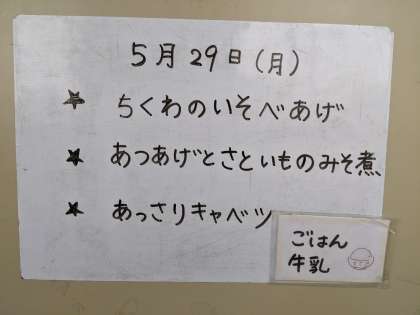 5月29日(月)
★ ちくわのいそべあげ
★ あつあげとさといものみそ煮
★ あっさりキャベツ
ごはん
牛乳